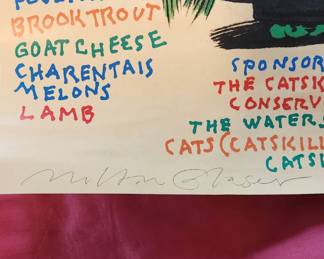 BROOK TROUT
GOAT CHEESE
CHARENTAIS
MELONS
LAMB
SPONSOR
THE CATSK
CONSERV
THE WATERS
CATS (CATSKILL
CATSK
Milton Glaser